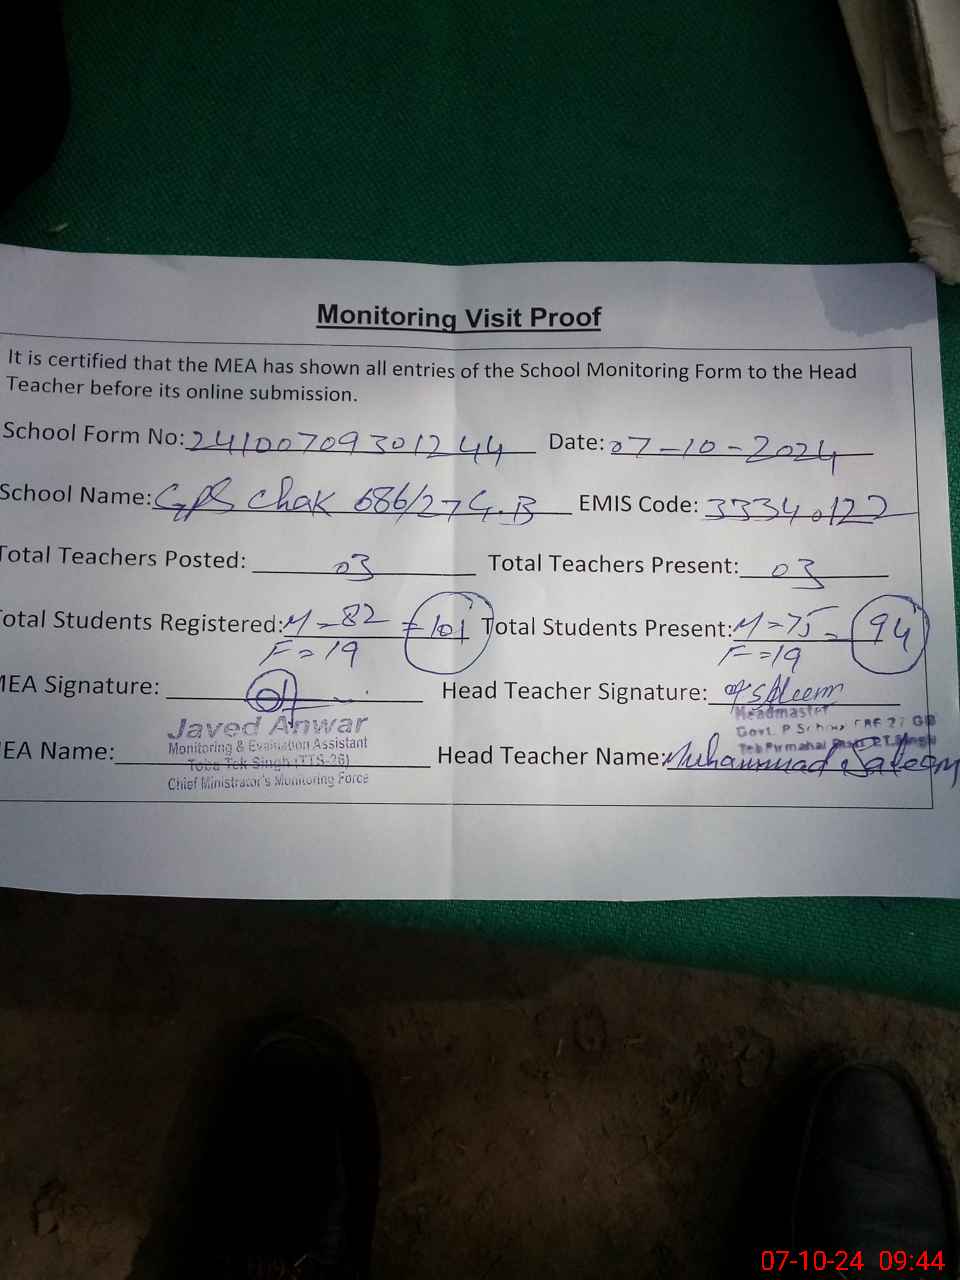 Monitoring Visit Proof
It is certified that the MEA has shown all entries of the School Monitoring Form to the Head
Teacher before its online submission.
School Form No: 24100709301244 Date: 07-10-2024
School Name: GPS Chak 686/27 G.B EMIS Code: 33340122
Total Teachers Posted: 03 Total Teachers Present: 03
otal Students Registered: M = 82 = 101 Total Students Present: M = 75 = 94
F = 19 F = 19
MEA Signature: Head Teacher Signature: Msaleem
Javed Anwar Headmaster
Monitoring & Evaluation Assistant Govt. P School 27 GB
EA Name: Head Teacher Name: Muhammad Saleem
Toba Tek Singh (TTS-26)
Chief Ministrator's Monitoring Force
07-10-24 09:44